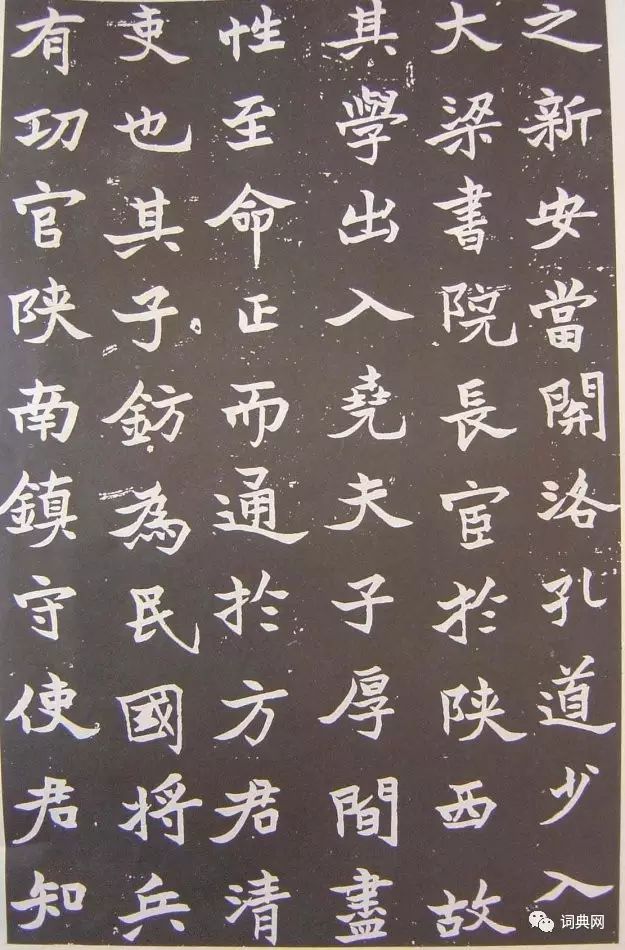 之新安當開洛孔道少入
大梁書院長宦於陕西故
其學出入堯夫子厚間盡
性至命正而通於方君清
吏也其子鈁為民國將兵
有功官陕南鎮守使君知
词典网